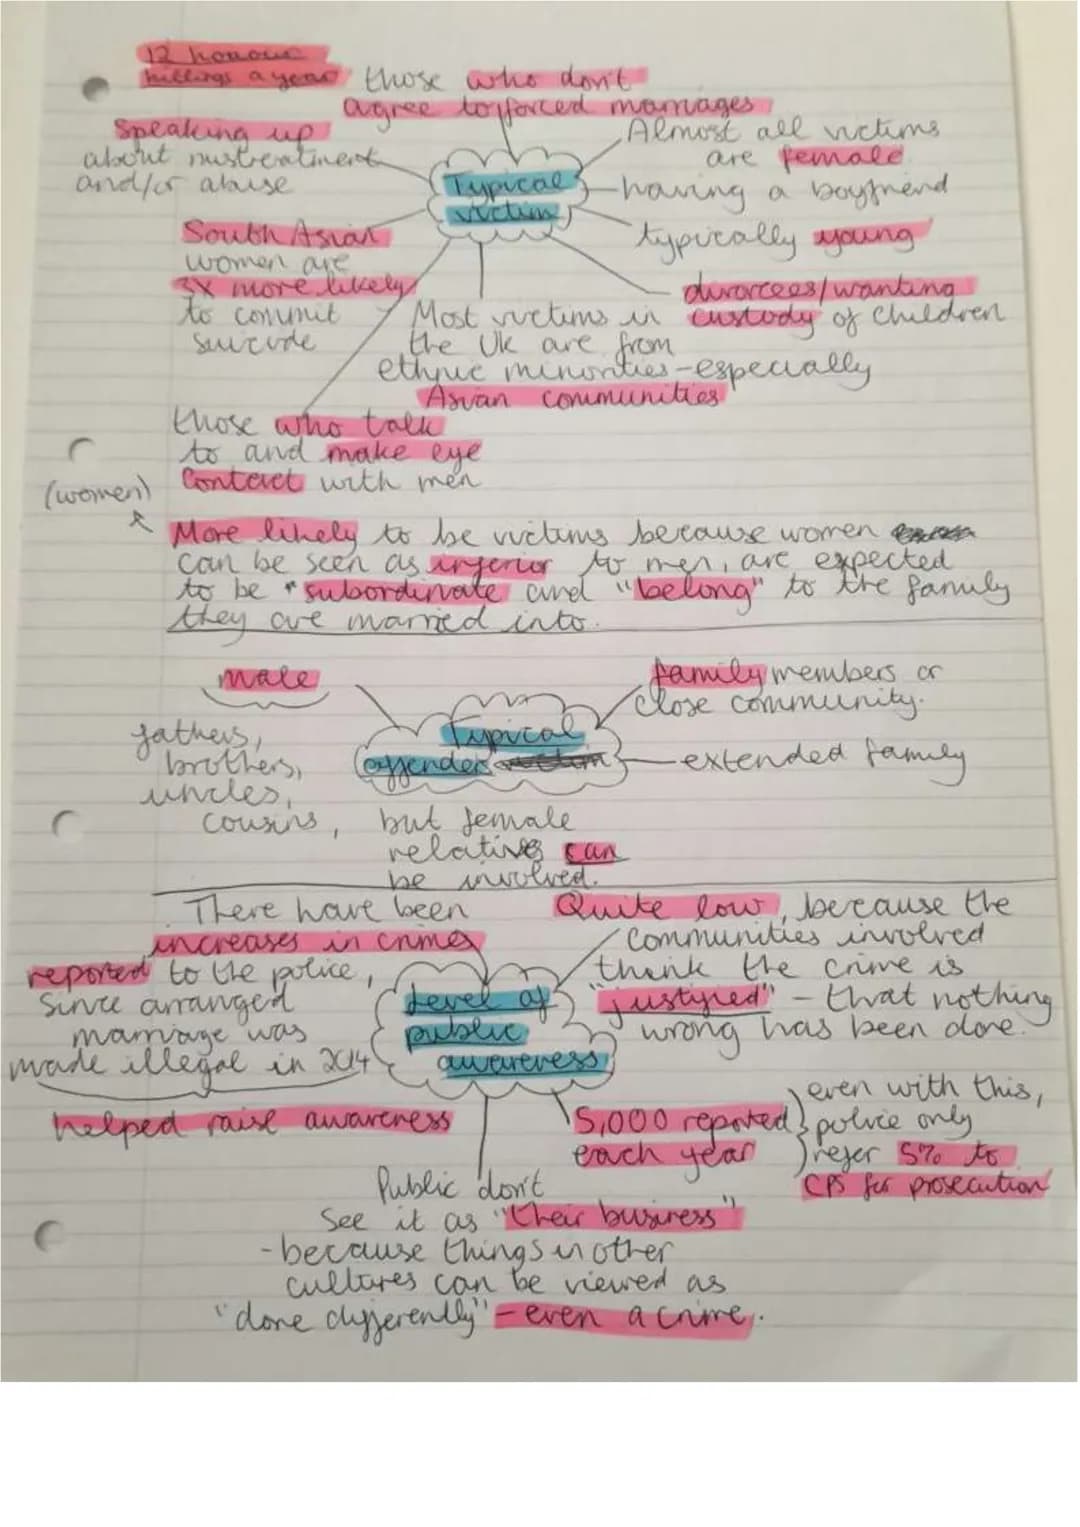 12 honour
killings a year
those who don't
agree to forced marriages
Speaking up
about mistreatment
and/or abuse
Typical
victim
Almost all victims
are female
having a boyfriend
typically young
divorcees/wanting
custody of children
South Asian
women are
3x more likely
to commit
suicide
Most victims in
the UK are from
ethnic minorities - especially
Asian communities
those who talk
to and make eye
contact with men
(women)
More likely to be victims because women
can be seen as inferior to men, are expected
to be "subordinate and "belong" to the family
they are married into.
male
fathers,
brothers,
uncles,
cousins,
Typical
offender
family members or
close community.
extended family
but female
relatives can
be involved.
There have been
increases in crimes
reported to the police,
since arranged
marriage was
made illegal in 2014
helped raise awareness
Level of
public
awareness
Quite low, because the
communities involved
think the crime is
"justified" - that nothing
wrong has been done.
5,000 reported
each year
even with this,
police only
refer 5% to
CPS for prosecution
Public don't
see it as "their business"
- because things in other
cultures can be viewed as
"done differently" - even a crime.